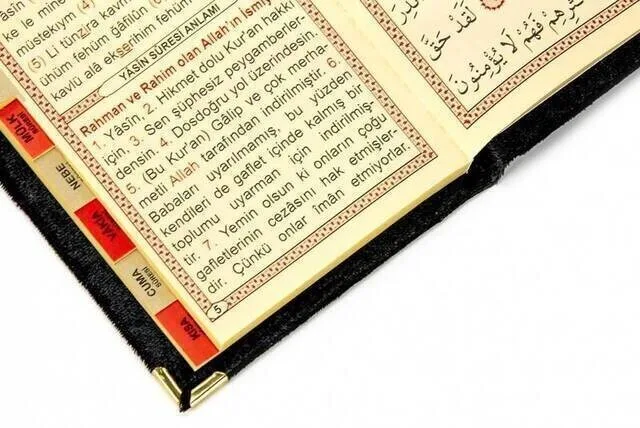 kavlü alâ ekserihim fehüm
müstekıym (4)
(5) Li tünzira kavmen
ühüm fehüm gâfilûn
YÂSİN SÛRESİ ANLAMI
Rahman ve Rahim olan Allah'ın İsmiy
1. Yâsîn, 2. Hikmet dolu Kur'an hakkı
için, 3. Sen şüphesiz peygamberler-
densin; 4. Dosdoğru yol üzerindesin.
5. (Bu Kur'an) Gâlip ve çok merha-
metli Allah tarafından indirilmiştir. 6.
Babaları uyarılmamış, bu yüzden
kendileri de gaflet içinde kalmış bir
toplumu uyarman için indirilmiş-
tir. 7. Yemin olsun ki onların çoğu
gafletlerinin cezâsını hak etmişler-
dir. Çünkü onlar îmân etmiyorlar.
5
MÜLK
SÛRESİ
NEBE
VAKIA
CUMA
SÛRESİ
KISA
لَقَدْ حَقَّ
فَهُمْ لَا يُؤْمِنُونَ